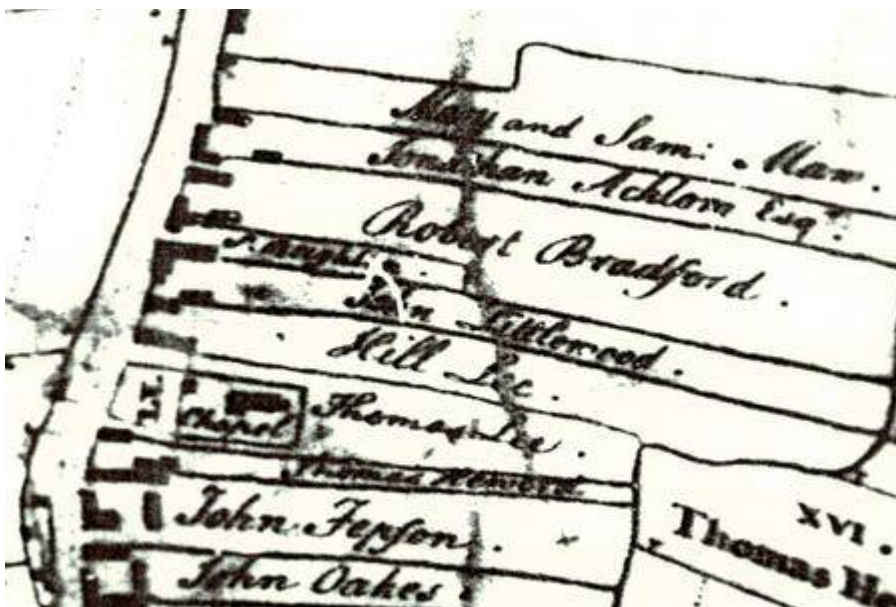 Mary and Sam: Maw.
Jonathan Acklom Esqr.
Robert Bradford.
John Littlewood.
Hill Lee.
Chapel
Thomas Lee.
Thomas
John Jepson.
John Oakes.
XVI.
Thomas He